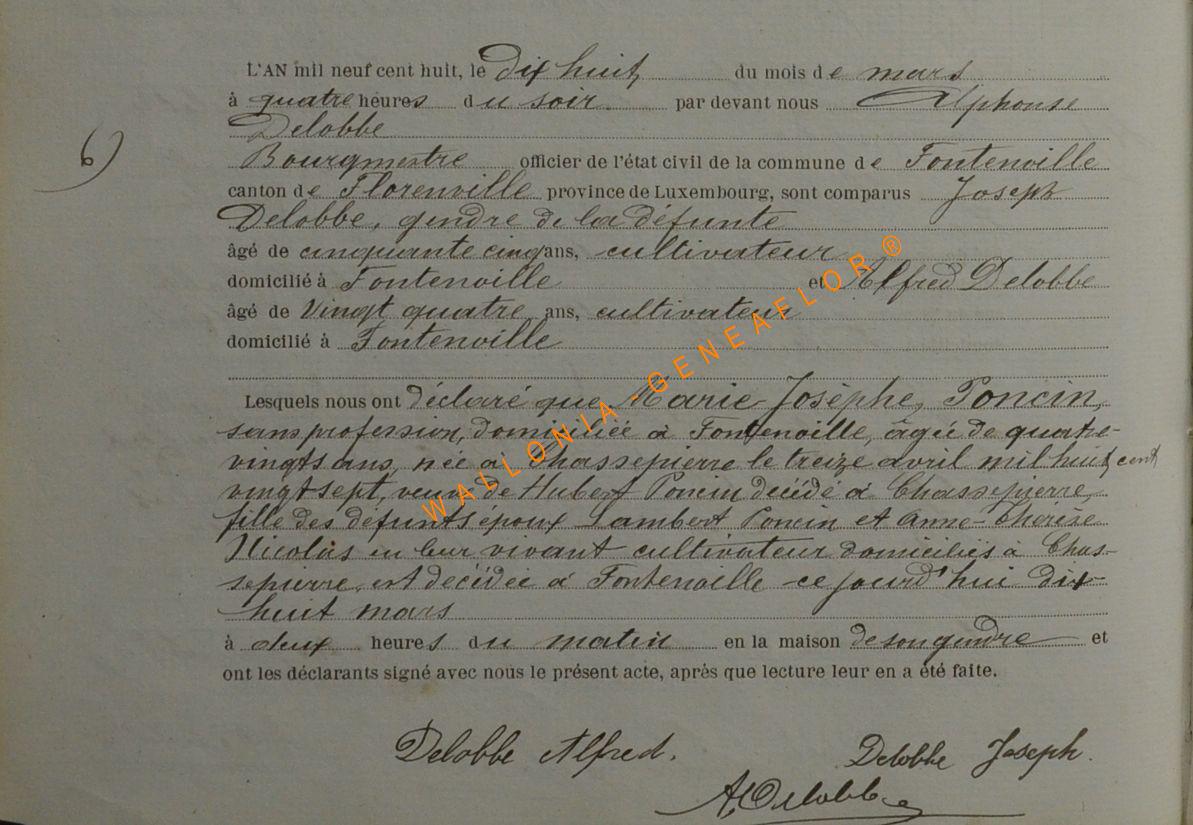 6)
L'AN mil neuf cent huit, le dix huit du mois de mars
à quatre heures du soir par devant nous Alphonse
Delobbe
Bourgmestre officier de l'état civil de la commune de Fontenoille
canton de Florenville province de Luxembourg, sont comparus Joseph
Delobbe, gendre de la défunte
âgé de cinquante cinq ans, cultivateur
domicilié à Fontenoille et Alfred Delobbe
âgé de Vingt quatre ans, cultivateur
domicilié à Fontenoille
Lesquels nous ont déclaré que Marie-Josèphe, Poncin,
sans profession, domiciliée à Fontenoille, âgée de quatre-
vingts ans, née à Chassepierre le treize avril mil huit cent
vingt sept, veuve de Hubert Poncin décédé à Chassepierre,
fille des défunts époux Lambert Poncin et Anne-Thérèse
Nicolas en leur vivant cultivateur domiciliés à Chas-
sepierre, est décédée à Fontenoille ce jourd'hui dix-
huit mars
à deux heures du matin en la maison de son gendre et
ont les déclarants signé avec nous le présent acte, après que lecture leur en a été faite.
Delobbe Alfred. Delobbe Joseph.
A. Delobbe
WALLONIA GENEAFLOR®